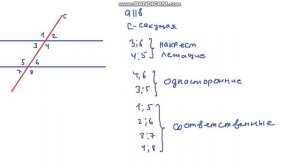 WWW.BANDICAM.COM
c
1 2
3 4
5 6
7 8
a||в
с-секущая
3;6 } накрест
4;5 лежащие
4;6 } односторонние
3;5
1;5
2;6
3;7 } соответственные
4;8